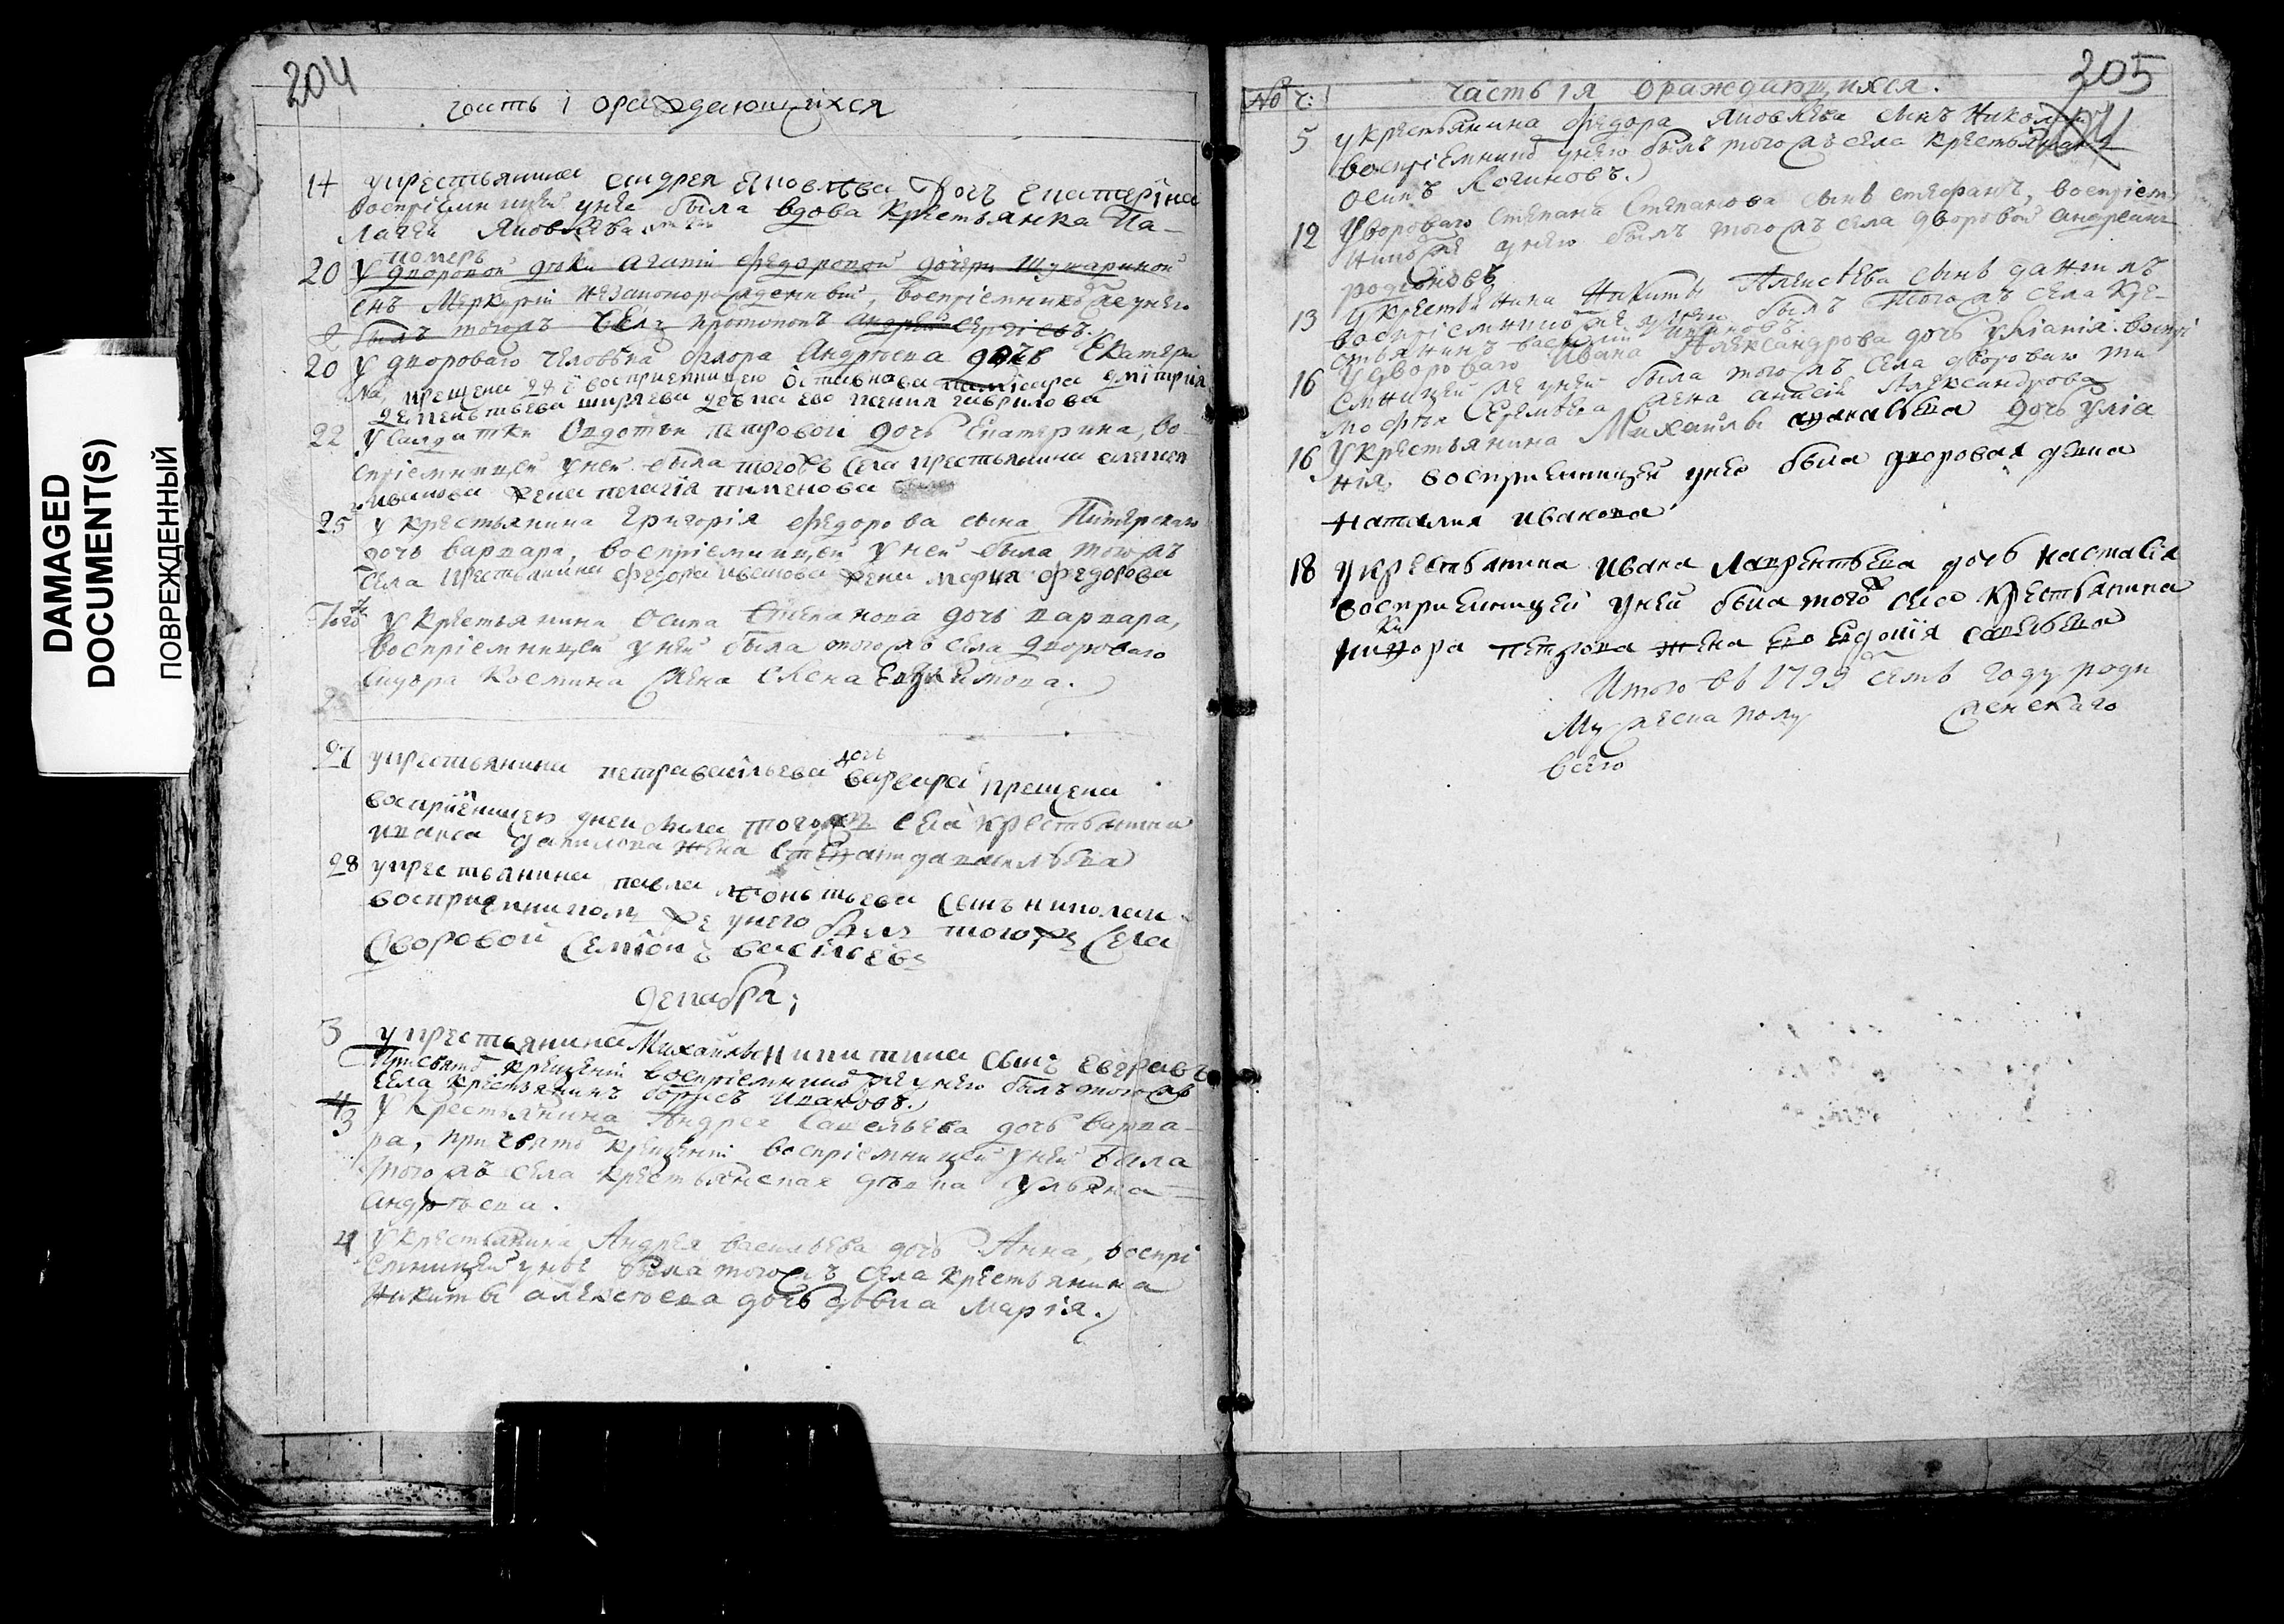 DAMAGED
DOCUMENT(S)
ПОВРЕЖДЕННЫЙ
204
часть 1 ораждающихся
17 укрестьянина андрея яковлева дочь екатеріна
воспріемницей унея была вдова крестьянка Па-
лагея Яковлева
померъ
20 У дворовой девки агапіи федоровой дочери
сынъ Меркурій незаконорожденный, воспріемникомже унего
былъ тогожъ села протопопъ андрей сергіевъ.
20 У двороваго человека флора Андреева дочь Екатери
на, крещена 24 воспріемницею дмітрія
дементьева ширяева девка ево ксенія гаврилова
22 У салдатки Овдотьи петровой дочь Екатерина, во-
спріемницей уней была тогожъ села крестьянина
иванова жена пелагія пименова
25 у крестьянина Григорія федорова сына Питерскаго
дочь варвара, воспріемницей уней была тогожъ
села крестьянина федора иванова жена марія федорова
Того ж у крестьянина Осипа Степанова дочь варвара,
воспріемницей уней была тогожъ села двороваго
Сидора Космина жена Елена Евфимова.
27 укрестьянина петра васільева дочь варвара крещена
воспріемницею уней была тогожъ села крестьянина
ивана данилова жена
28 укрестьянина павла леонтьева сынъ николай
воспріемникомъ же унего былъ тогожъ села
дворовой Семіонъ васільевъ
декабря;
3 у крестьянина Михайлы никитина сынъ евграфъ
Присвято крещеніи воспріемникомъ же унего былъ тогожъ
села крестьянинъ борисъ Ивановъ.
3 У Крестьянина Андрея Савельева дочь варва-
ра, присвято крещеніи воспріемницей уней была
тогожъ села крестьянская девка Ульяна
андреева.
4 Укрестьянина Андрея васильева дочь Анна, воспрі
емницей уное была тогожъ села крестьянина
Никиты алексеева дочь девка Марія.
205
№ ч: Часть 1я ораждающихся.
5 укрестьянина федора Яковлева сынъ Николай
воспріемникомъ унего былъ тогожъ села крестьянинъ
осипъ Логиновъ.
12 Удвороваго Степана Степанова сынъ стефанъ, воспріем
никомже унего былъ тогожъ села дворовой андреянъ
родіоновъ
13 Укрестьянина Никиты Алексеева сынъ даніилъ
воспріемникомже унего былъ тогожъ села кре-
стьянинъ василій Ивановъ.
16 Удвороваго Ивана Александрова дочь уліанія. воспрі
емницей же уней была тогожъ села двороваго ти
мофея Еремеева жена анисія Александрова
16 Укрестьянина Михайлы ананьева дочь уліа
нія, воспріемницей унею была дворовая девка
наталия иванова
18 укрестьянина ивана лаврентьева дочь настасія
воспріемницей уней была тогож села крестьянина
никифора петрова жена его евдокія савельева
Итого въ 1799 семъ году роди
Мужеска полу женскаго
всего